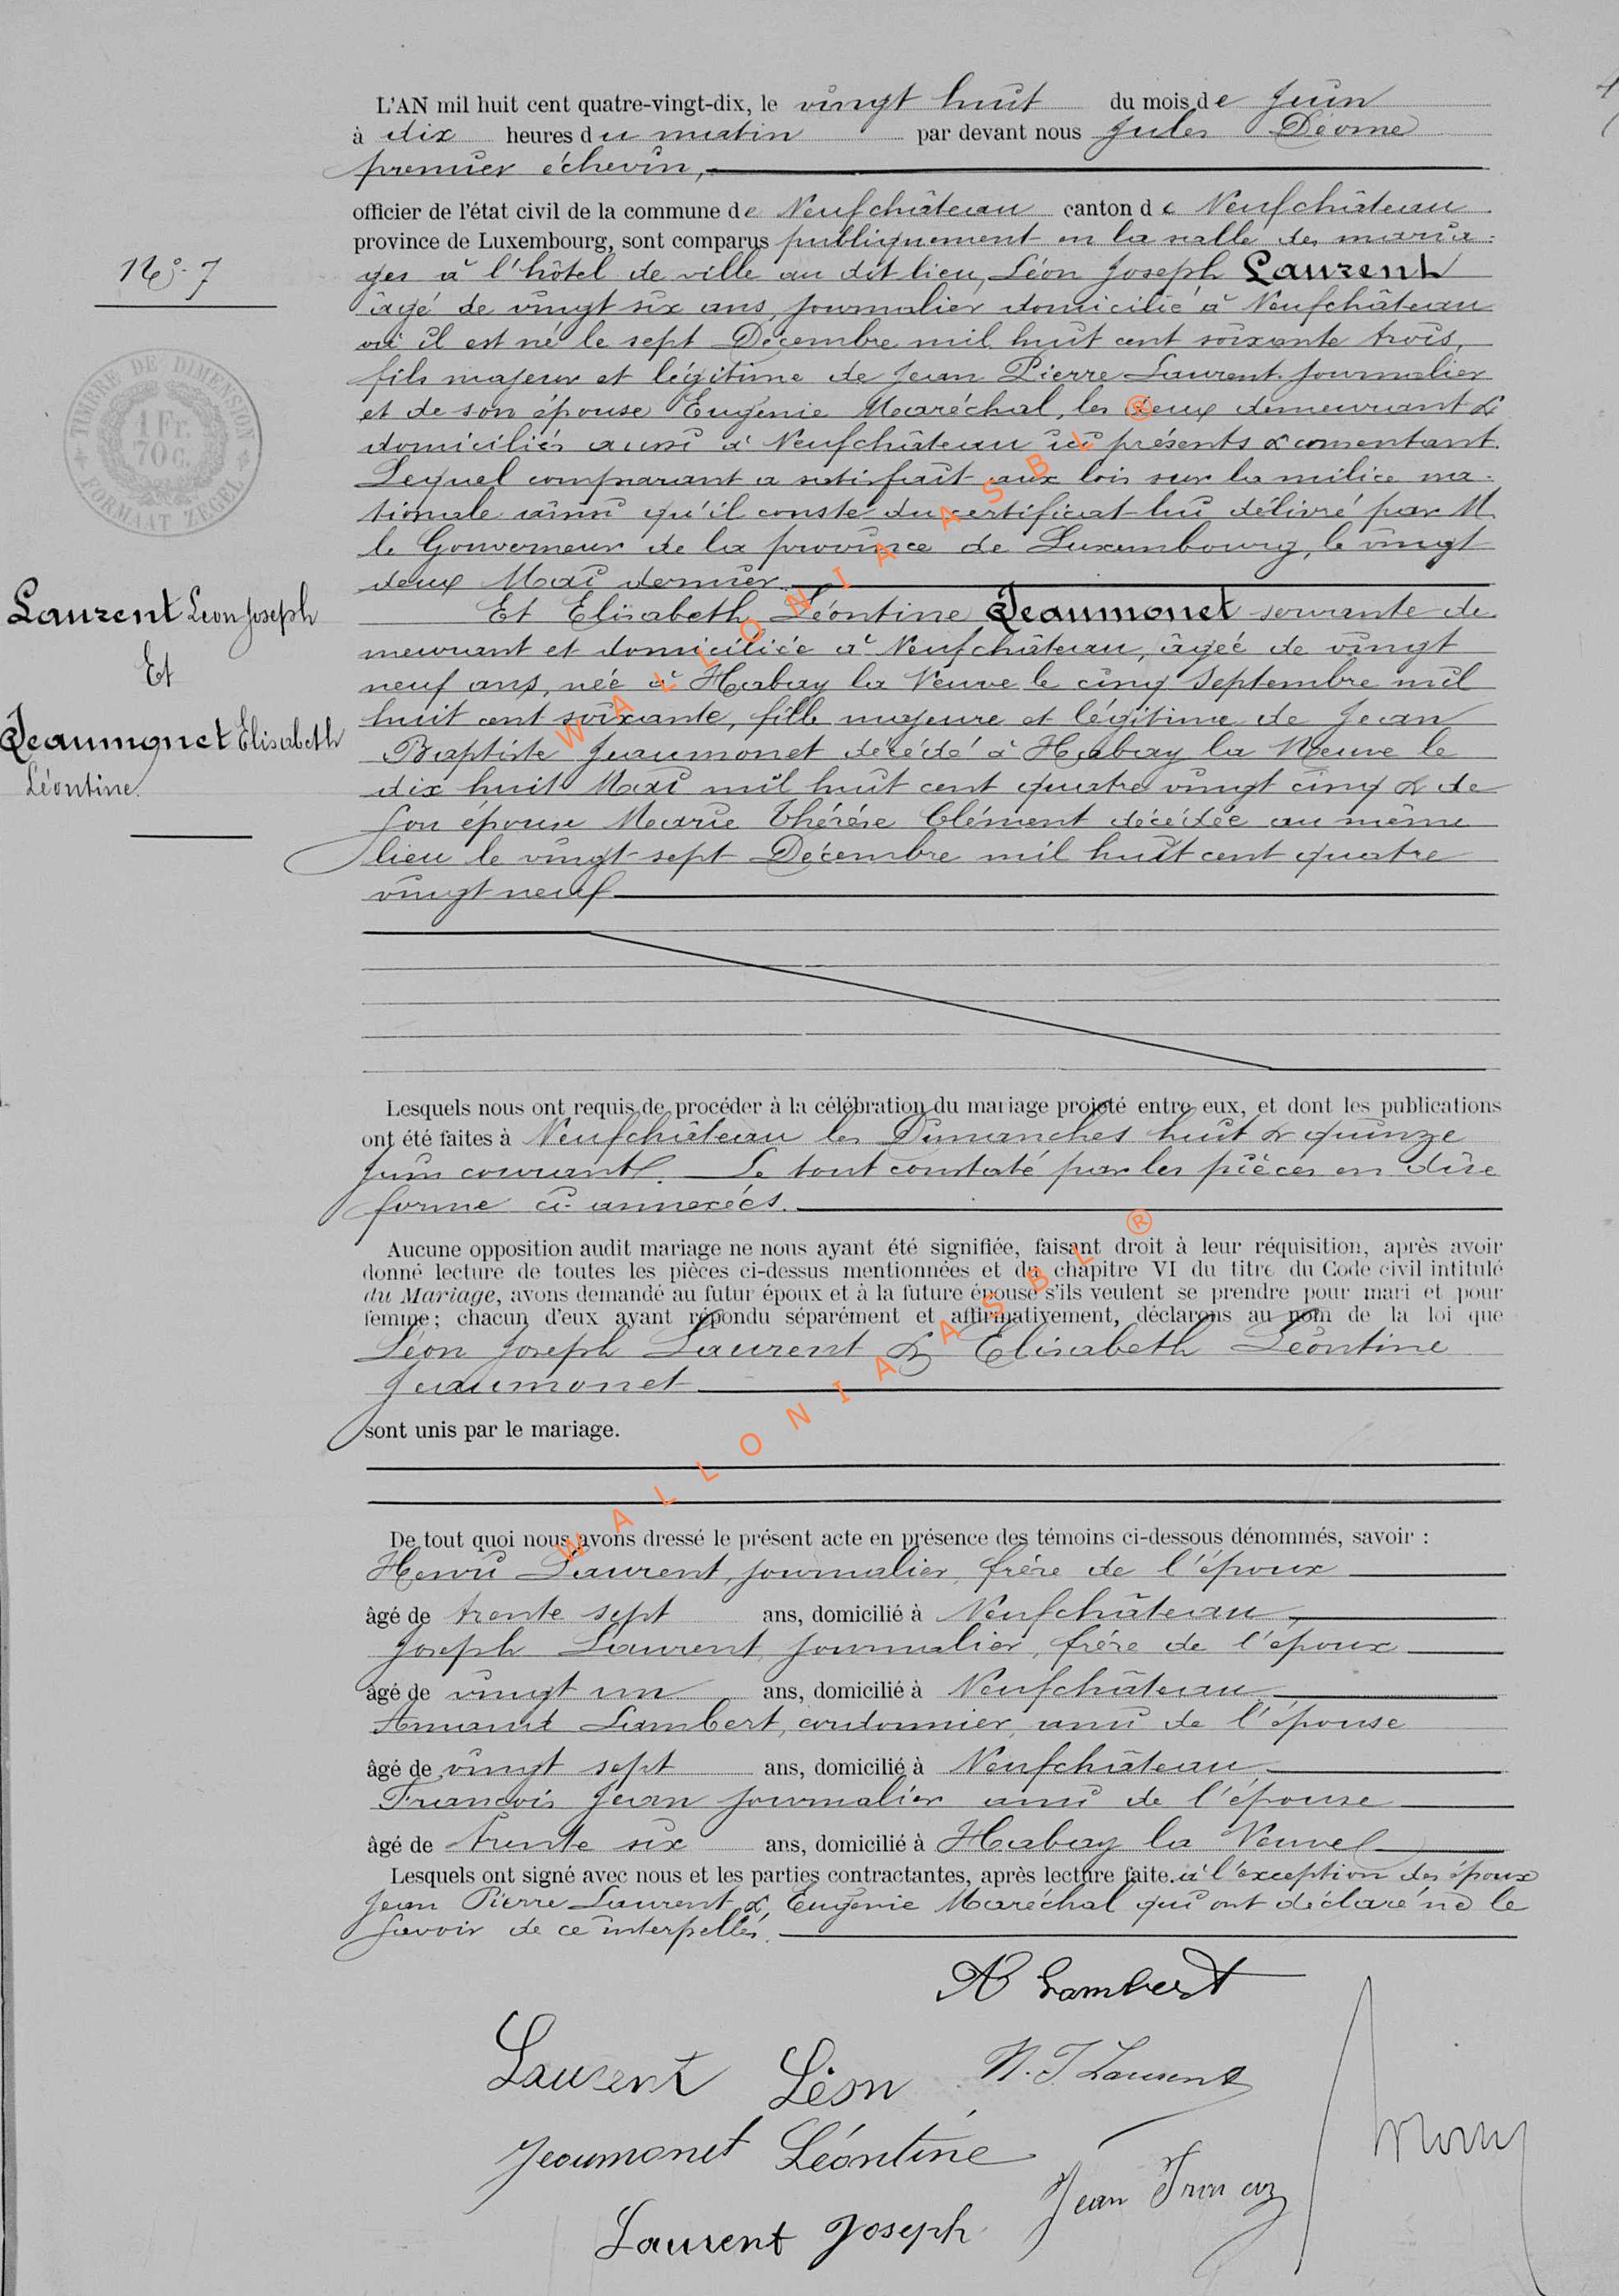 L'AN mil huit cent quatre-vingt-dix, le vingt huit du mois de Juin
à dix heures du matin par devant nous Jules
premier échevin,
officier de l'état civil de la commune de Neufchâteau canton de Neufchâteau
province de Luxembourg, sont comparus publiquement en la salle des maria-
ges à l'hôtel de ville au dit lieu, Léon Joseph Laurent
âgé de vingt six ans, journalier domicilié à Neufchâteau
où il est né le sept Décembre mil huit cent soixante trois,
fils majeur et légitime de Jean Pierre Laurent journalier
et de son épouse Eugénie Maréchal, les deux demeurant &
domiciliés aussi à Neufchâteau ici présents & consentant.
Lequel comparant a satisfait aux lois sur la milice na-
tionale ainsi qu'il conste du certificat lui délivré par M.
le Gouverneur de la province de Luxembourg, le vingt
deux Mai dernier.
Et Elisabeth Léontine Jeaumonet servante de-
meurant et domiciliée à Neufchâteau, âgée de vingt
neuf ans, née à Habay la Neuve le cinq Septembre mil
huit cent soixante, fille majeure et légitime de Jean
Baptiste Jeaumonet décédé à Habay la Neuve le
dix huit Mai mil huit cent quatre vingt cinq & de
son épouse Marie Thérèse Clément décédée au même
lieu le vingt-sept Décembre mil huit cent quatre
vingt neuf
No. 7
TIMBRE DE DIMENSION
1 Fr.
70 c.
FORMAAT ZEGEL
Laurent Léon Joseph
Et
Jeaumonet Elisabeth
Léontine.
Lesquels nous ont requis de procéder à la célébration du mariage projeté entre eux, et dont les publications
ont été faites à Neufchâteau les Dimanches huit & quinze
Juin courant. Le tout constaté par les pièces en due
forme ci-annexées.
Aucune opposition audit mariage ne nous ayant été signifiée, faisant droit à leur réquisition, après avoir
donné lecture de toutes les pièces ci-dessus mentionnées et du chapitre VI du titre du Code civil intitulé
du Mariage, avons demandé au futur époux et à la future épouse s'ils veulent se prendre pour mari et pour
femme; chacun d'eux ayant répondu séparément et affirmativement, déclarons au nom de la loi que
Léon Joseph Laurent & Elisabeth Léontine
Jeaumonet
sont unis par le mariage.
De tout quoi nous avons dressé le présent acte en présence des témoins ci-dessous dénommés, savoir :
Henri Laurent, journalier, frère de l'époux
âgé de trente sept ans, domicilié à Neufchâteau,
Joseph Laurent, journalier, frère de l'époux
âgé de vingt un ans, domicilié à Neufchâteau
Amand Lambert, cordonnier, ami de l'épouse
âgé de vingt sept ans, domicilié à Neufchâteau
François Jean journalier ami de l'épouse
âgé de trente six ans, domicilié à Habay la Neuve
Lesquels ont signé avec nous et les parties contractantes, après lecture faite. à l'exception des époux
Jean Pierre Laurent & Eugénie Maréchal qui ont déclaré ne le
savoir de ce interpellés.
A Lambert
Laurent Léon H. J. Laurent
Jeaumonet Léontine
Jean
Laurent Joseph
WALLONIA ASBL ®
WALLONIA ASBL ®